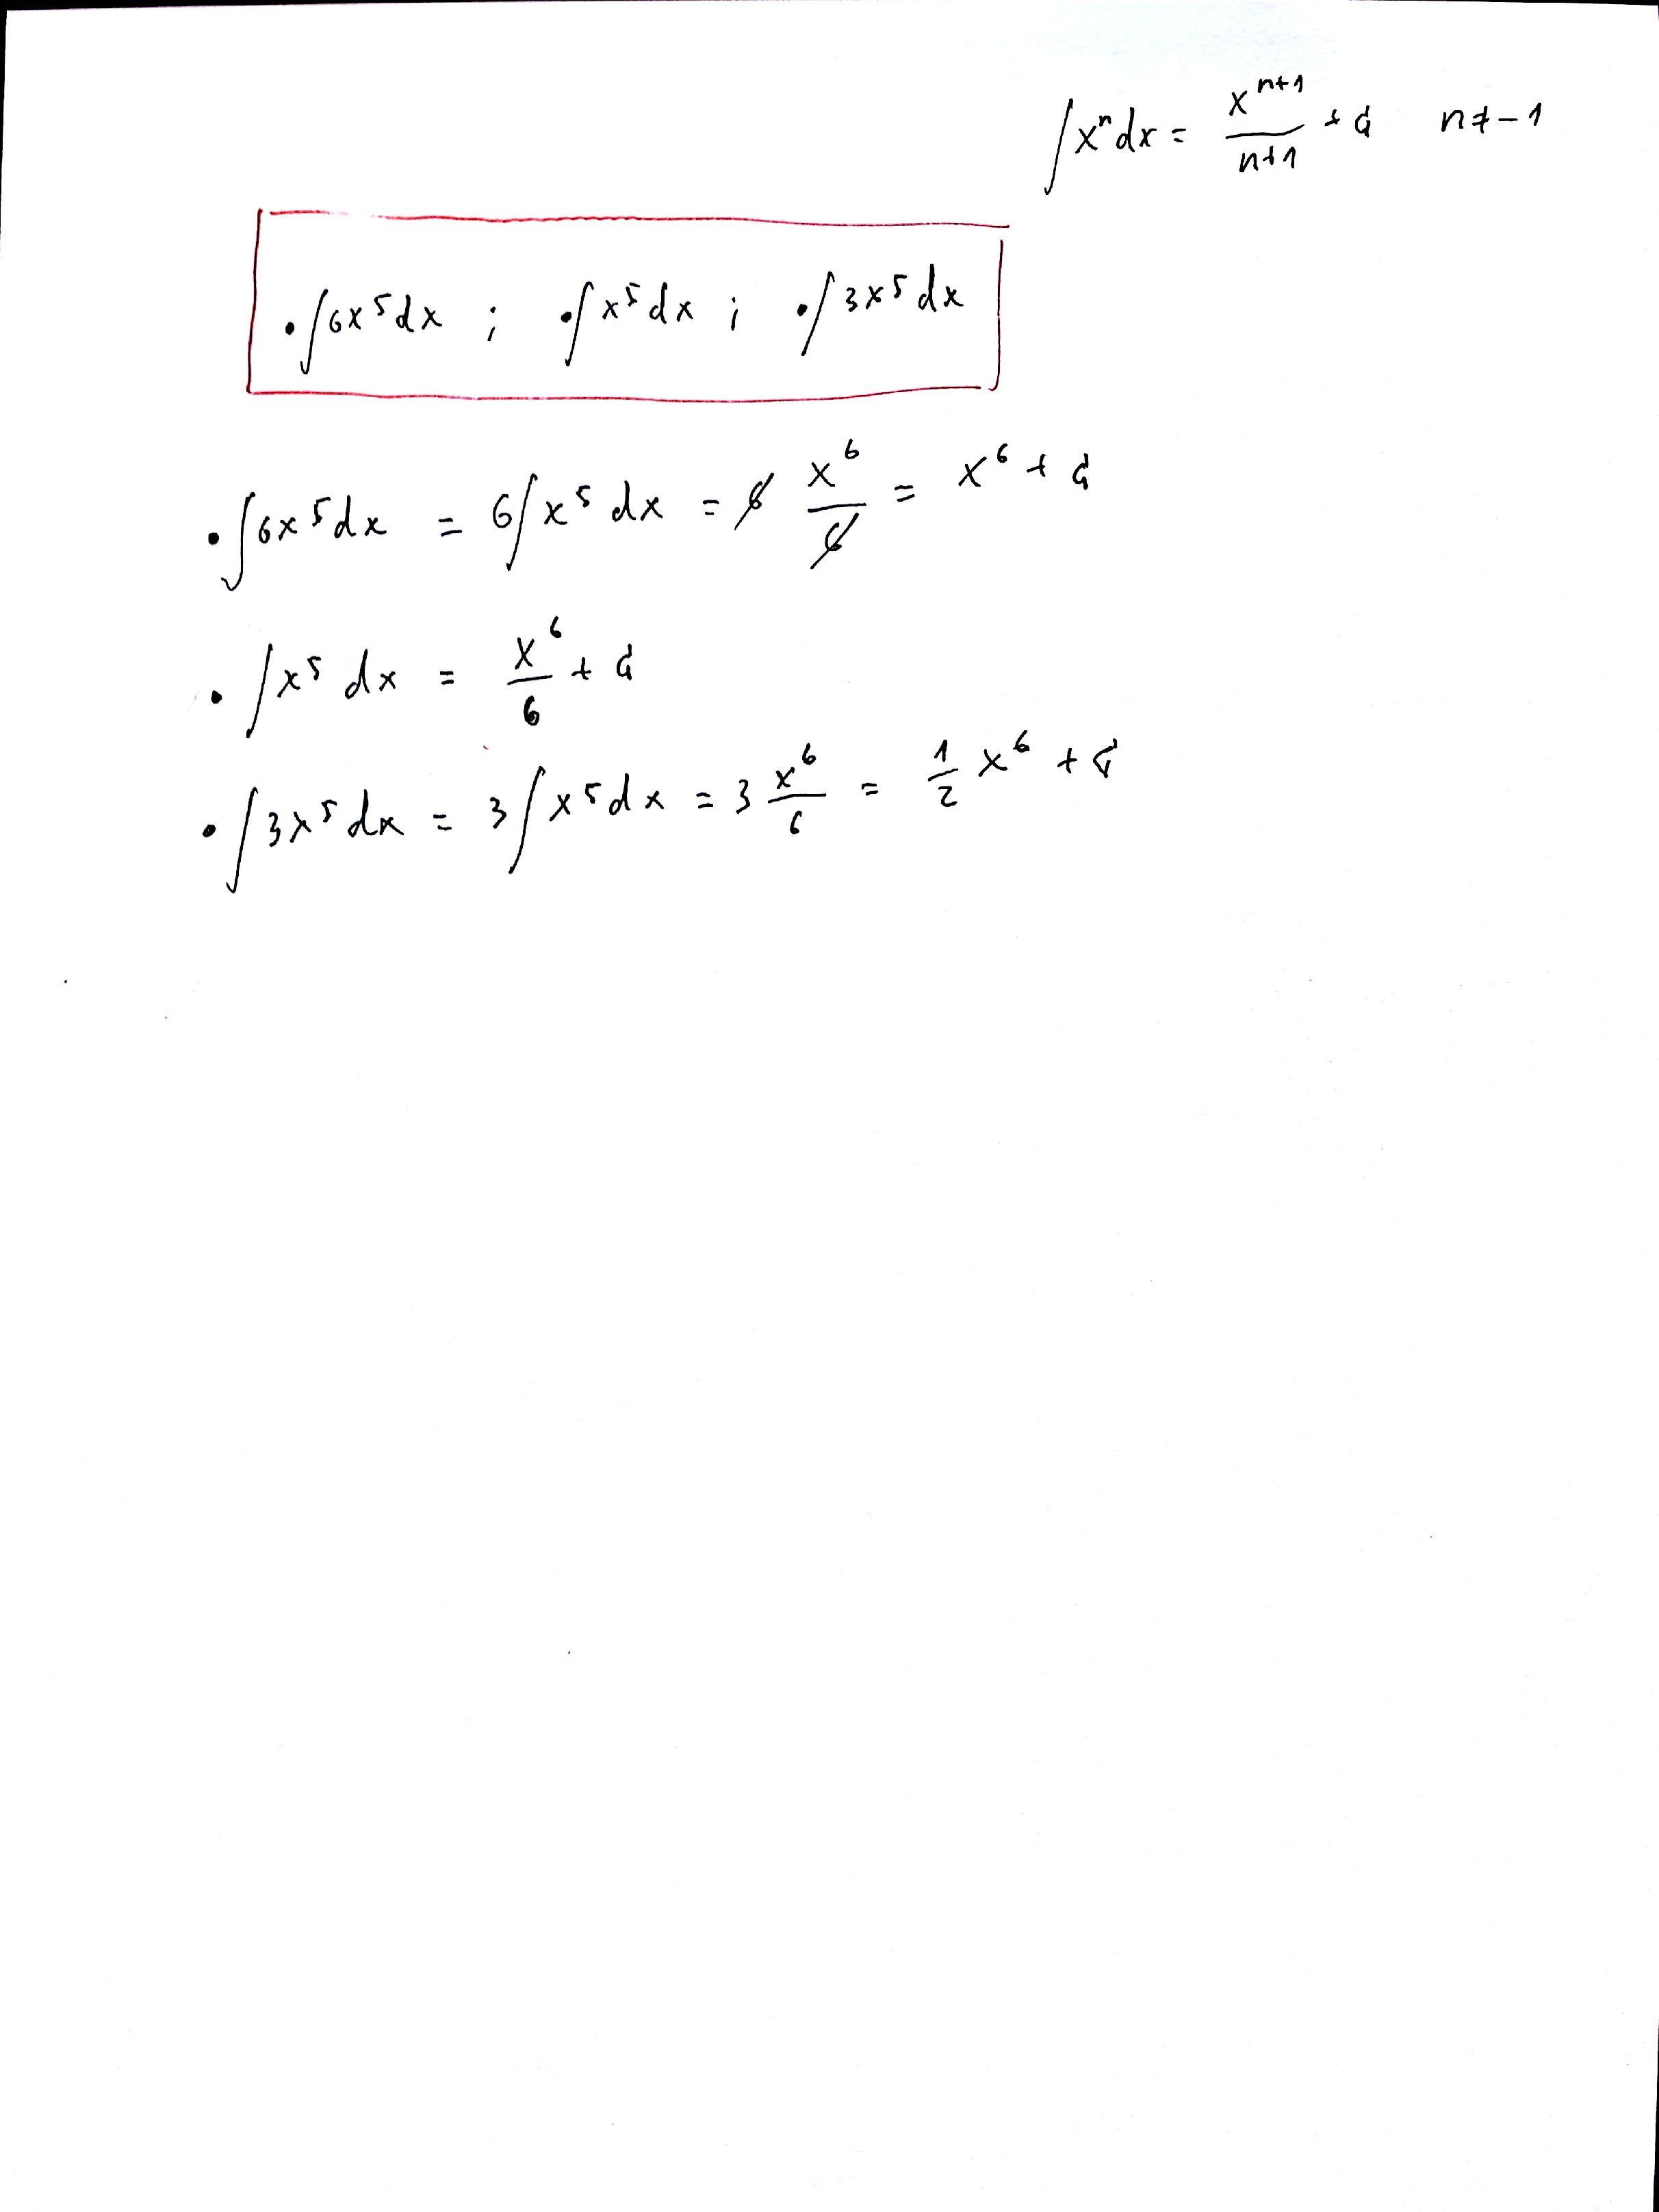 ∫xⁿdx = xⁿ⁺¹/(n+1) + C n ≠ -1
• ∫6x⁵dx ; • ∫x⁵dx ; • ∫3x⁵dx
• ∫6x⁵dx = 6∫x⁵dx = 6 x⁶/6 = x⁶ + C
• ∫x⁵dx = x⁶/6 + C
• ∫3x⁵dx = 3∫x⁵dx = 3 x⁶/6 = 1/2 x⁶ + C